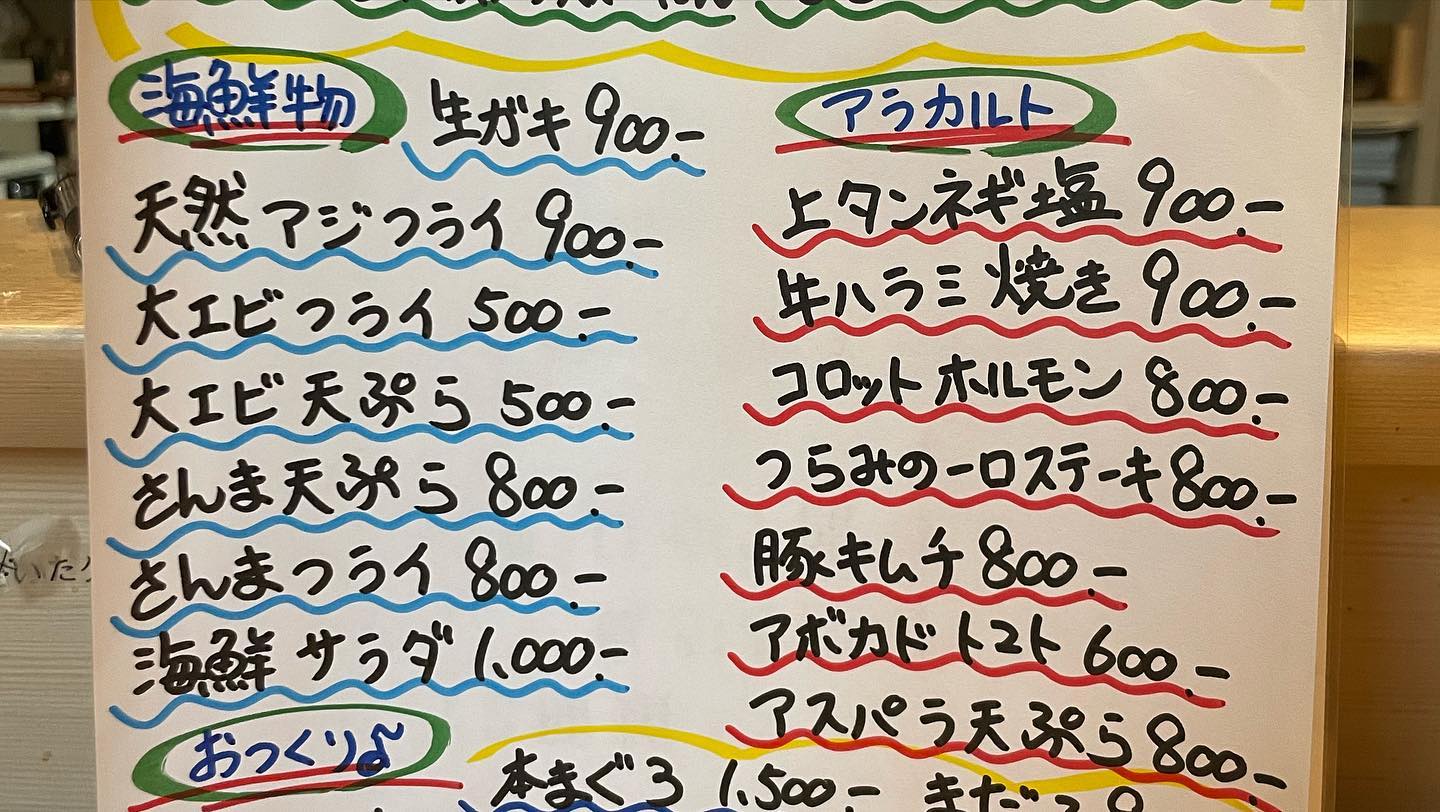 海鮮物
生ガキ 900.-
天然アジフライ 900.-
大エビフライ 500.-
大エビ天ぷら 500.-
さんま天ぷら 800.-
さんまフライ 800.-
海鮮サラダ 1,000.-
アラカルト
上タンネギ塩 900.-
牛ハラミ焼き 900.-
コロットホルモン 800.-
つらみの一口ステーキ 800.-
豚キムチ 800.-
アボカドトマト 600.-
アスパラ天ぷら 800.-
おつくり♪
本まぐろ 1,500.-